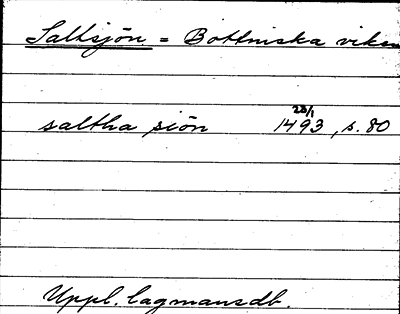 Saltsjön = Bottniska viken
saltha siön 23/1 1493, s. 80
Uppl. lagmansdb.